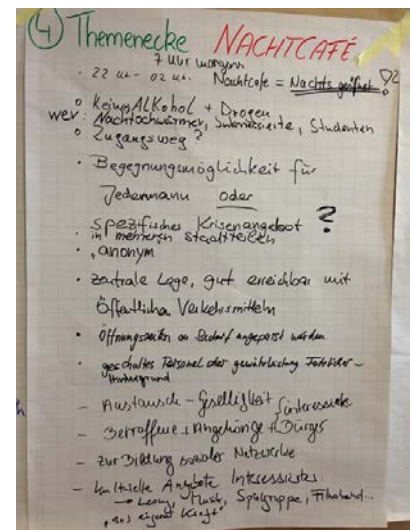 ④ Themenecke NACHTCAFÉ
7 Uhr morgens
· 22 Uhr - 02 Uhr. Nachtcafe = Nachts geöffnet
° keinen Alkohol + Drogen
wer: Nachtschwärmer, Interessierte, Studenten
° Zugangsweg?
· Begegnungsmöglichkeit für
Jedermann oder
· spezifisches Krisenangebot ?
in mehreren Stadtteilen
· "anonym
· zentrale Lage, gut erreichbar mit
Öffentlichen Verkehrsmitteln
· Öffnungszeiten an Bedarf angepasst werden
· geschultes Personal oder
Hintergrund
- Austausch - Geselligkeit
- Betroffene + Angehörige + Bürger
- zur Bildung sozialer Netzwerke
- kulturelle Angebote Interessierter
→ Musik, Spielgruppe,
"aus eigener Kraft"